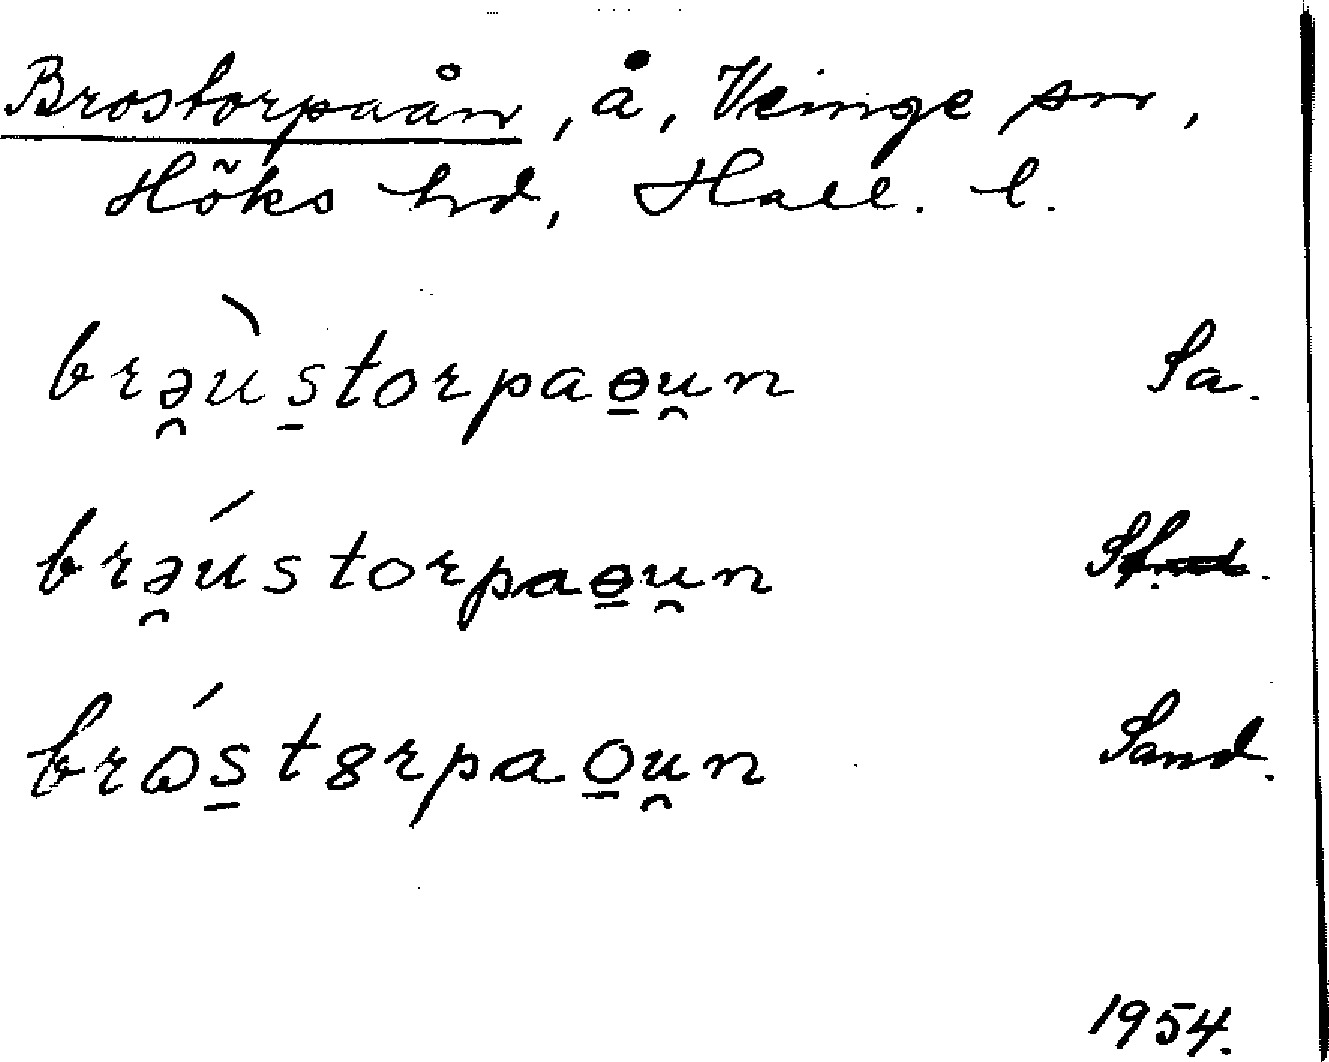 Brostorpaån, å, Veinge sn,
Höks hd, Hall. l.
brə̯ùs̱torpaɵ̱u̯n Sa.
brə̯ústorpaɵ̱u̯n
brɷ́s̱t8rpao̱u̯n Sand.
1954.